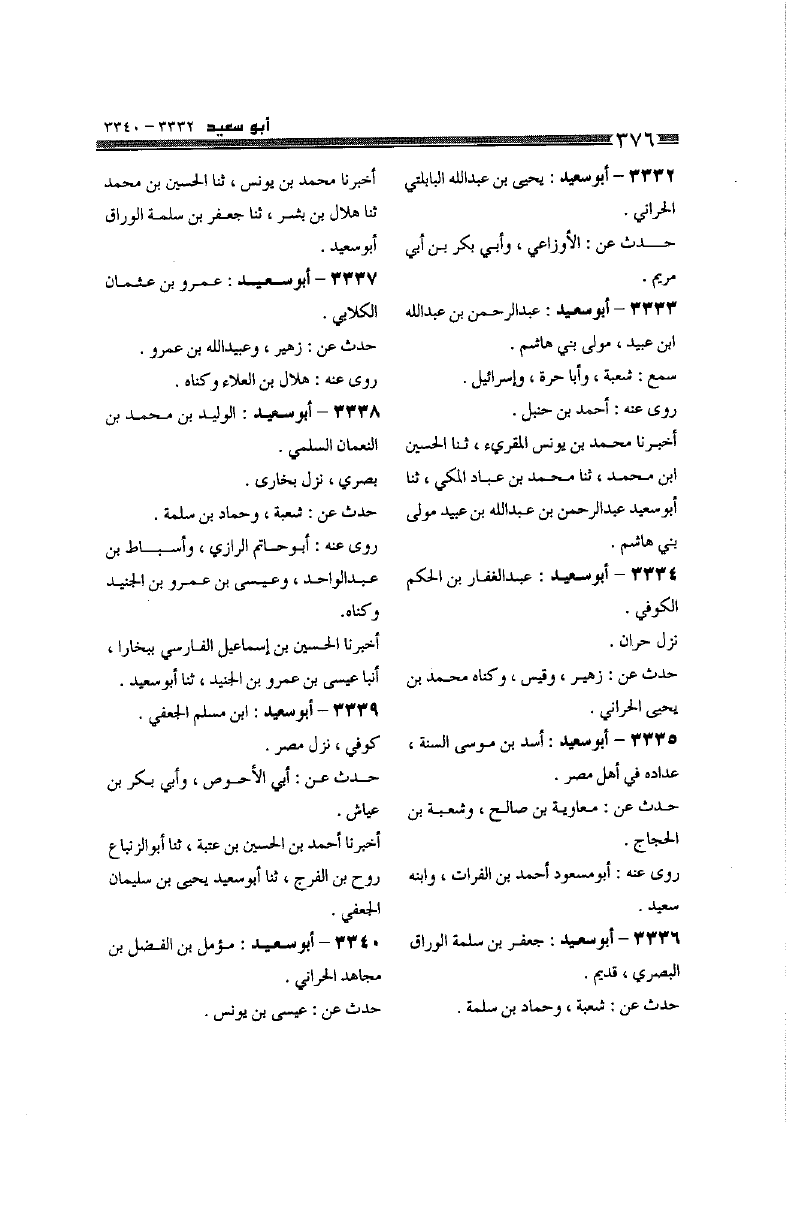 أبو سعيد ٣٣٣٢ – ٣٣٤٠
٣٧٦
٣٣٣٢ – أبو سعيد : يحيى بن عبدالله البابلتي
الحراني .
حـــدث عن : الأوزاعي ، وأبي بكر بن أبي
مريم .
٣٣٣٣ – أبو سعيد : عبدالرحمن بن عبدالله
ابن عبيد ، مولى بني هاشم .
سمع : شعبة ، وأبا حرة ، وإسرائيل .
روى عنه : أحمد بن حنبل .
أخبرنا محمد بن يونس المقريء ، ثنا الحسين
ابن محمد ، ثنا محمد بن عباد المكي ، ثنا
أبو سعيد عبدالرحمن بن عبدالله بن عبيد مولى
بني هاشم .
٣٣٣٤ – أبو سعيد : عبدالغفار بن الحكم
الكوفي .
نزل حران .
حدث عن : زهير ، وقيس ، وكناه محمد بن
يحيى الحراني .
٣٣٣٥ – أبو سعيد : أسد بن موسى السنة ،
عداده في أهل مصر .
حدث عن : معاوية بن صالح ، وشعبة بن
الحجاج .
روى عنه : أبو مسعود أحمد بن الفرات ، وابنه
سعيد .
٣٣٣٦ – أبو سعيد : جعفر بن سلمة الوراق
البصري ، قديم .
حدث عن : شعبة ، وحماد بن سلمة .
أخبرنا محمد بن يونس ، ثنا الحسين بن محمد
ثنا هلال بن بشر ، ثنا جعفر بن سلمة الوراق
أبو سعيد .
٣٣٣٧ – أبو سعيد : عمرو بن عثمان
الكلابي .
حدث عن : زهير ، وعبيدالله بن عمرو .
روى عنه : هلال بن العلاء وكناه .
٣٣٣٨ – أبو سعيد : الوليد بن محمد بن
النعمان السلمي .
بصري ، نزل بخارى .
حدث عن : شعبة ، وحماد بن سلمة .
روى عنه : أبو حاتم الرازي ، وأسباط بن
عبدالواحد ، وعيسى بن عمرو بن الجنيد
وكناه.
أخبرنا الحسين بن إسماعيل الفارسي ببخارا ،
أنبا عيسى بن عمرو بن الجنيد ، ثنا أبو سعيد .
٣٣٣٩ – أبو سعيد : ابن مسلم الجعفي .
كوفي ، نزل مصر .
حـدث عن : أبي الأحوص ، وأبي بكر بن
عياش .
أخبرنا أحمد بن الحسين بن عتبة ، ثنا أبو الزنباع
روح بن الفرج ، ثنا أبو سعيد يحيى بن سليمان
الجعفي .
٣٣٤٠ – أبو سعيد : مؤمل بن الفضل بن
مجاهد الحراني .
حدث عن : عيسى بن يونس .